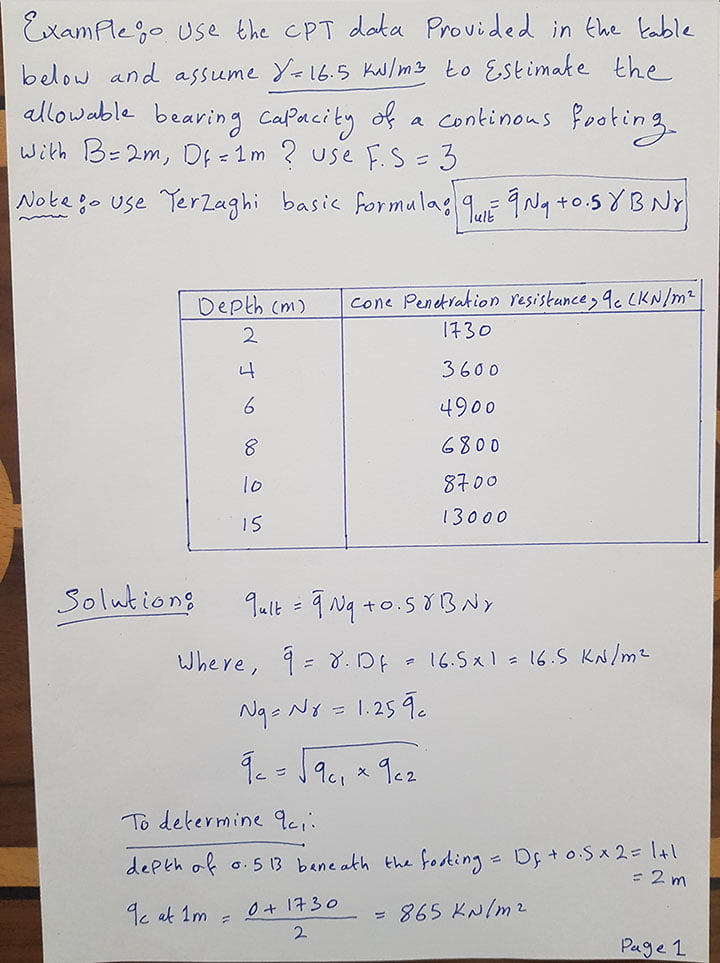 Example:- Use the CPT data Provided in the table
below and assume γ=16.5 KN/m3 to Estimate the
allowable bearing capacity of a continous footing
with B=2m, Df=1m ? use F.S = 3
Note:- use Terzaghi basic formula: qult = q̄Nq+0.5γBNγ
Depth (m) Cone Penetration resistance, qc (KN/m²
2 1730
4 3600
6 4900
8 6800
10 8700
15 13000
Solution: qult = q̄Nq+0.5γBNγ
Where, q̄ = γ.Df = 16.5x1 = 16.5 KN/m²
Nq=Nγ = 1.25 q̄c
q̄c = √qc1 x qc2
To determine qc1:
depth of 0.5B beneath the footing = Df + 0.5x2 = 1+1
= 2m
qc at 1m = 0+1730/2 = 865 KN/m²
Page 1